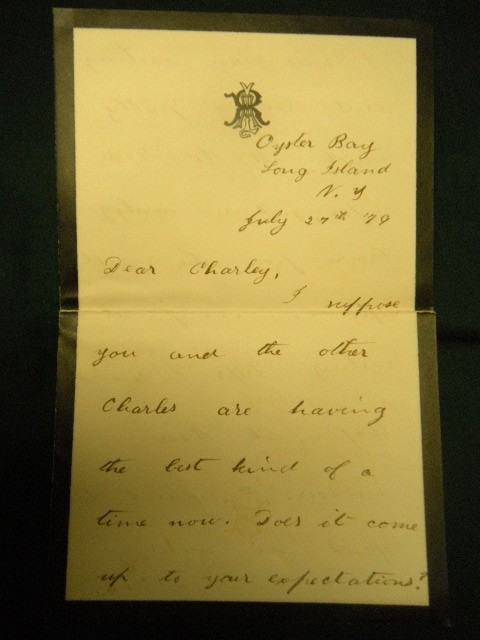 Oyster Bay
Long Island
N. Y
July 27th '79
Dear Charley,
I suppose
you and the other
Charles are having
the best kind of a
time now. Does it come
up to your expectations?